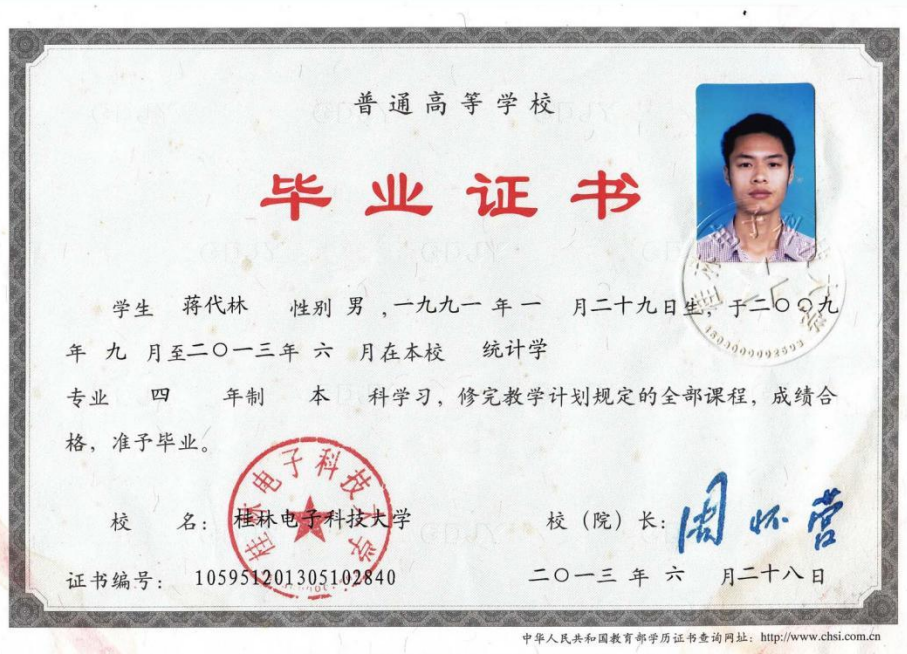 普通高等学校
毕业证书
学生 蒋代林 性别 男 ,一九九一 年 一 月二十九日生，于二〇〇九
年 九 月至二〇一三年 六 月在本校 统计学
专业 四 年制 本 科学习，修完教学计划规定的全部课程，成绩合
格，准予毕业。
桂林电子科技大学
校 名: 桂林电子科技大学 校（院）长: 周怀营
证书编号: 105951201305102840 二〇一三 年 六 月二十八日
中华人民共和国教育部学历证书查询网址: http://www.chsi.com.cn